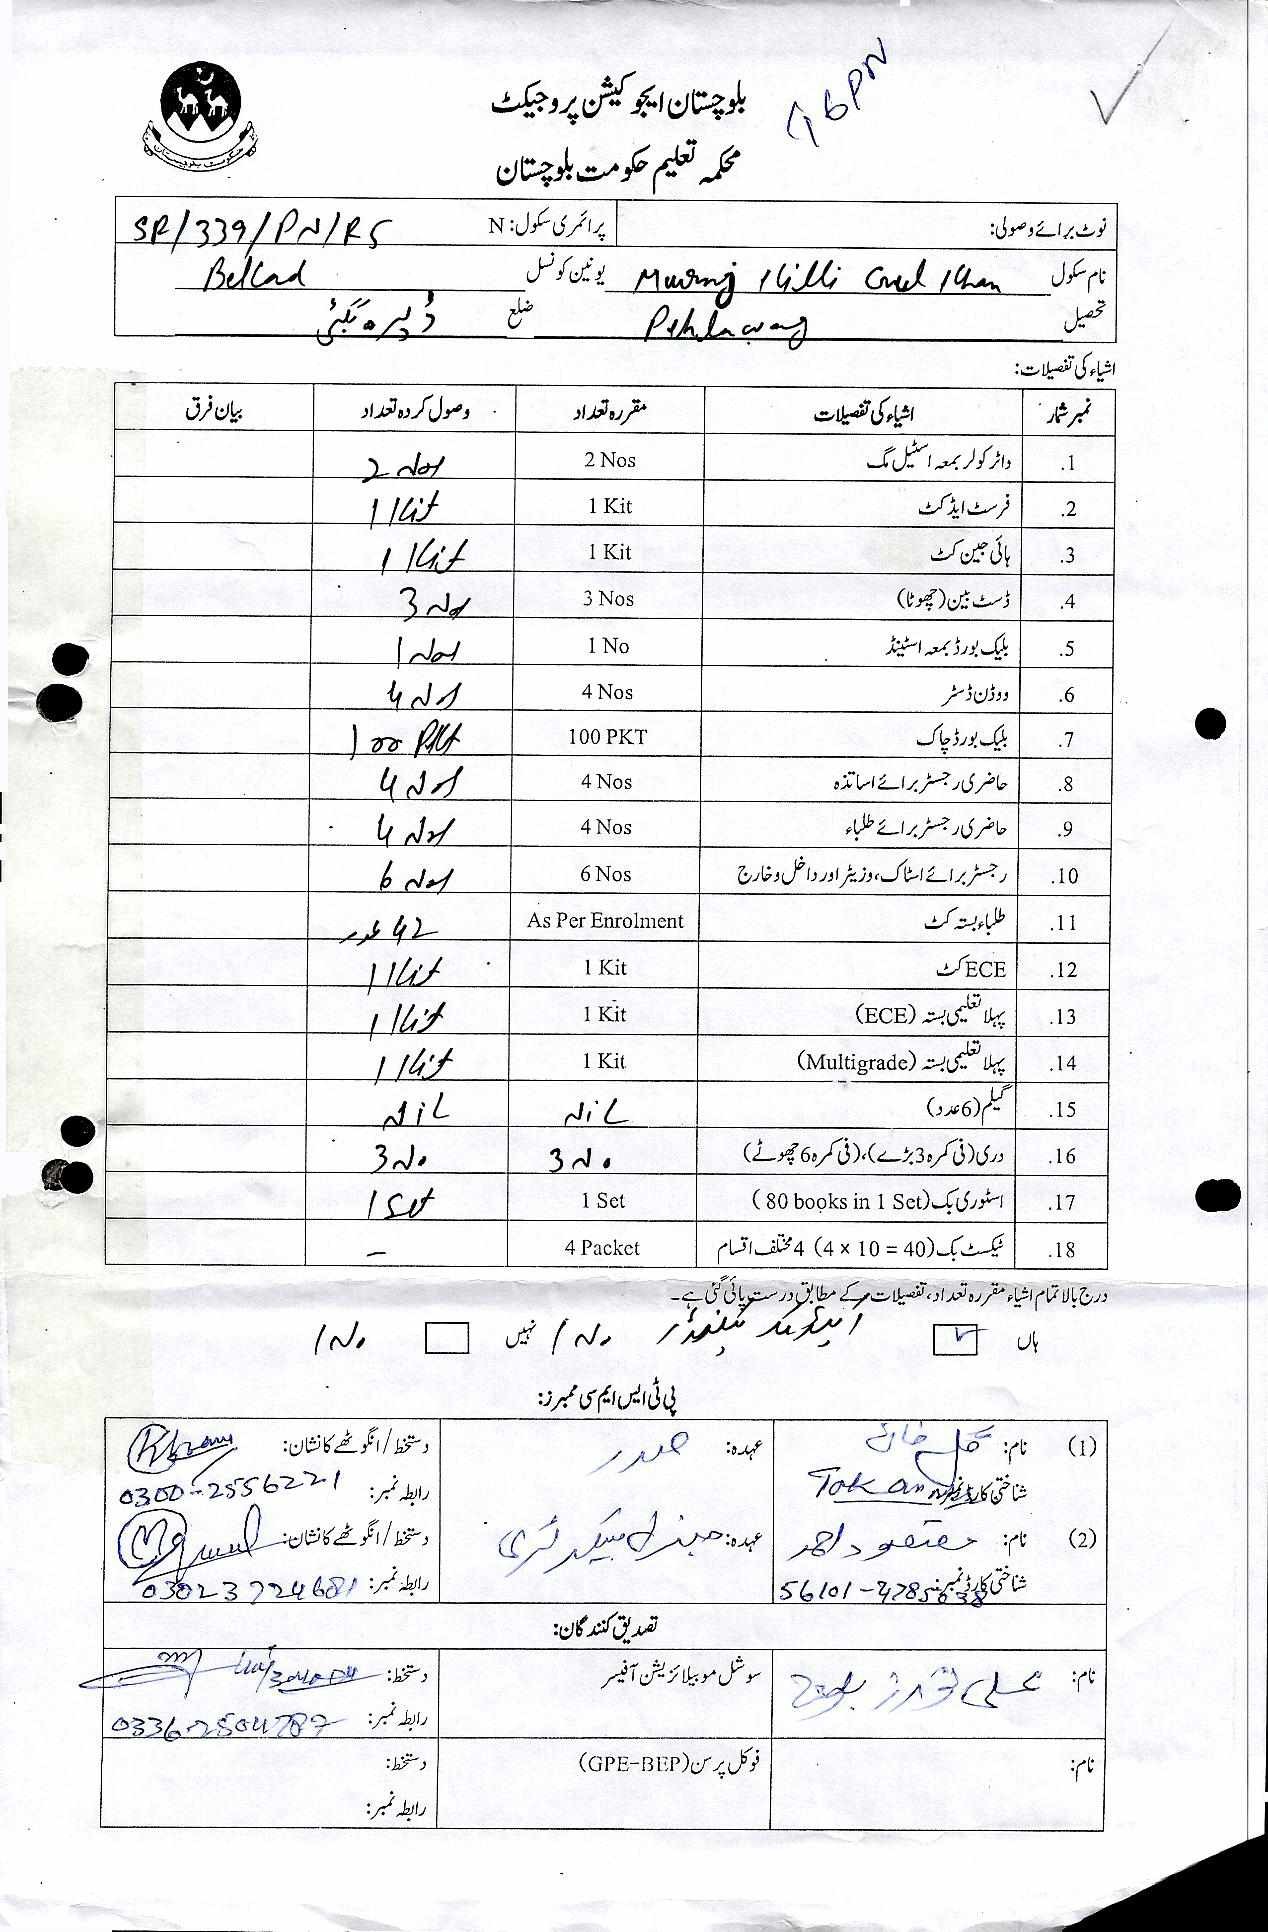 GBPN
بلوچستان ایجوکیشن پروجیکٹ
محکمہ تعلیم حکومت بلوچستان
نوٹ برائے وصولی: پرائمری سکول: N SR/339/PN/RS
نام سکول Killi Gul Khan یونین کونسل Bekad
تحصیل ضلع ڈیرہ بگٹی
اشیاء کی تفصیلات:
نمبر شمار اشیاء کی تفصیلات مقررہ تعداد وصول کردہ تعداد بیان فرق
1. واٹر کولر بمعہ اسٹیل مگ 2 Nos 2 Nos
2. فرسٹ ایڈ کٹ 1 Kit 1 Kit
3. ہائی جین کٹ 1 Kit 1 Kit
4. ڈسٹ بین (چھوٹا) 3 Nos 3 No
5. بلیک بورڈ بمعہ اسٹینڈ 1 No 1 Nos
6. ووڈن ڈسٹر 4 Nos 4 Nos
7. بلیک بورڈ چاک 100 PKT 100 PKT
8. حاضری رجسٹر برائے اساتذہ 4 Nos 4 Nos
9. حاضری رجسٹر برائے طلباء 4 Nos 4 Nos
10. رجسٹر برائے اسٹاک، وزیٹر اور داخل و خارج 6 Nos 6 Nos
11. طلباء بستہ کٹ As Per Enrolment 42 عدد
12. ECE کٹ 1 Kit 1 Kit
13. پہلا تعلیمی بستہ (ECE) 1 Kit 1 Kit
14. پہلا تعلیمی بستہ (Multigrade) 1 Kit 1 Kit
15. گیلم (6 عدد) Nil Nil
16. دری (فی کمرہ 3 بڑے)، (فی کمرہ 6 چھوٹے) 3 No 3 No
17. اسٹوری بک (80 books in 1 Set) 1 Set 1 Set
18. ٹیکسٹ بک (4 x 10 = 40) 4 مختلف اقسام 4 Packet –
درج بالا تمام اشیاء مقررہ تعداد، تفصیلات کے مطابق درست پائی گئی ہے۔
ہاں 1 No نہیں 1 No
پی ٹی ایس ایم سی ممبرز:
(1) نام: گل خان عہدہ: صدر دستخط/انگوٹھے کا نشان:
شناختی کارڈ نمبر: Tokan رابطہ نمبر: 0300-2556221
(2) نام: مقصود احمد عہدہ: جنرل سیکرٹری دستخط/انگوٹھے کا نشان:
شناختی کارڈ نمبر: رابطہ نمبر: 03023724681
تصدیق کنندگان:
نام: سوشل موبیلائزیشن آفیسر دستخط:
رابطہ نمبر: 0336-2504787
نام: فوکل پرسن (GPE-BEP) دستخط:
رابطہ نمبر: